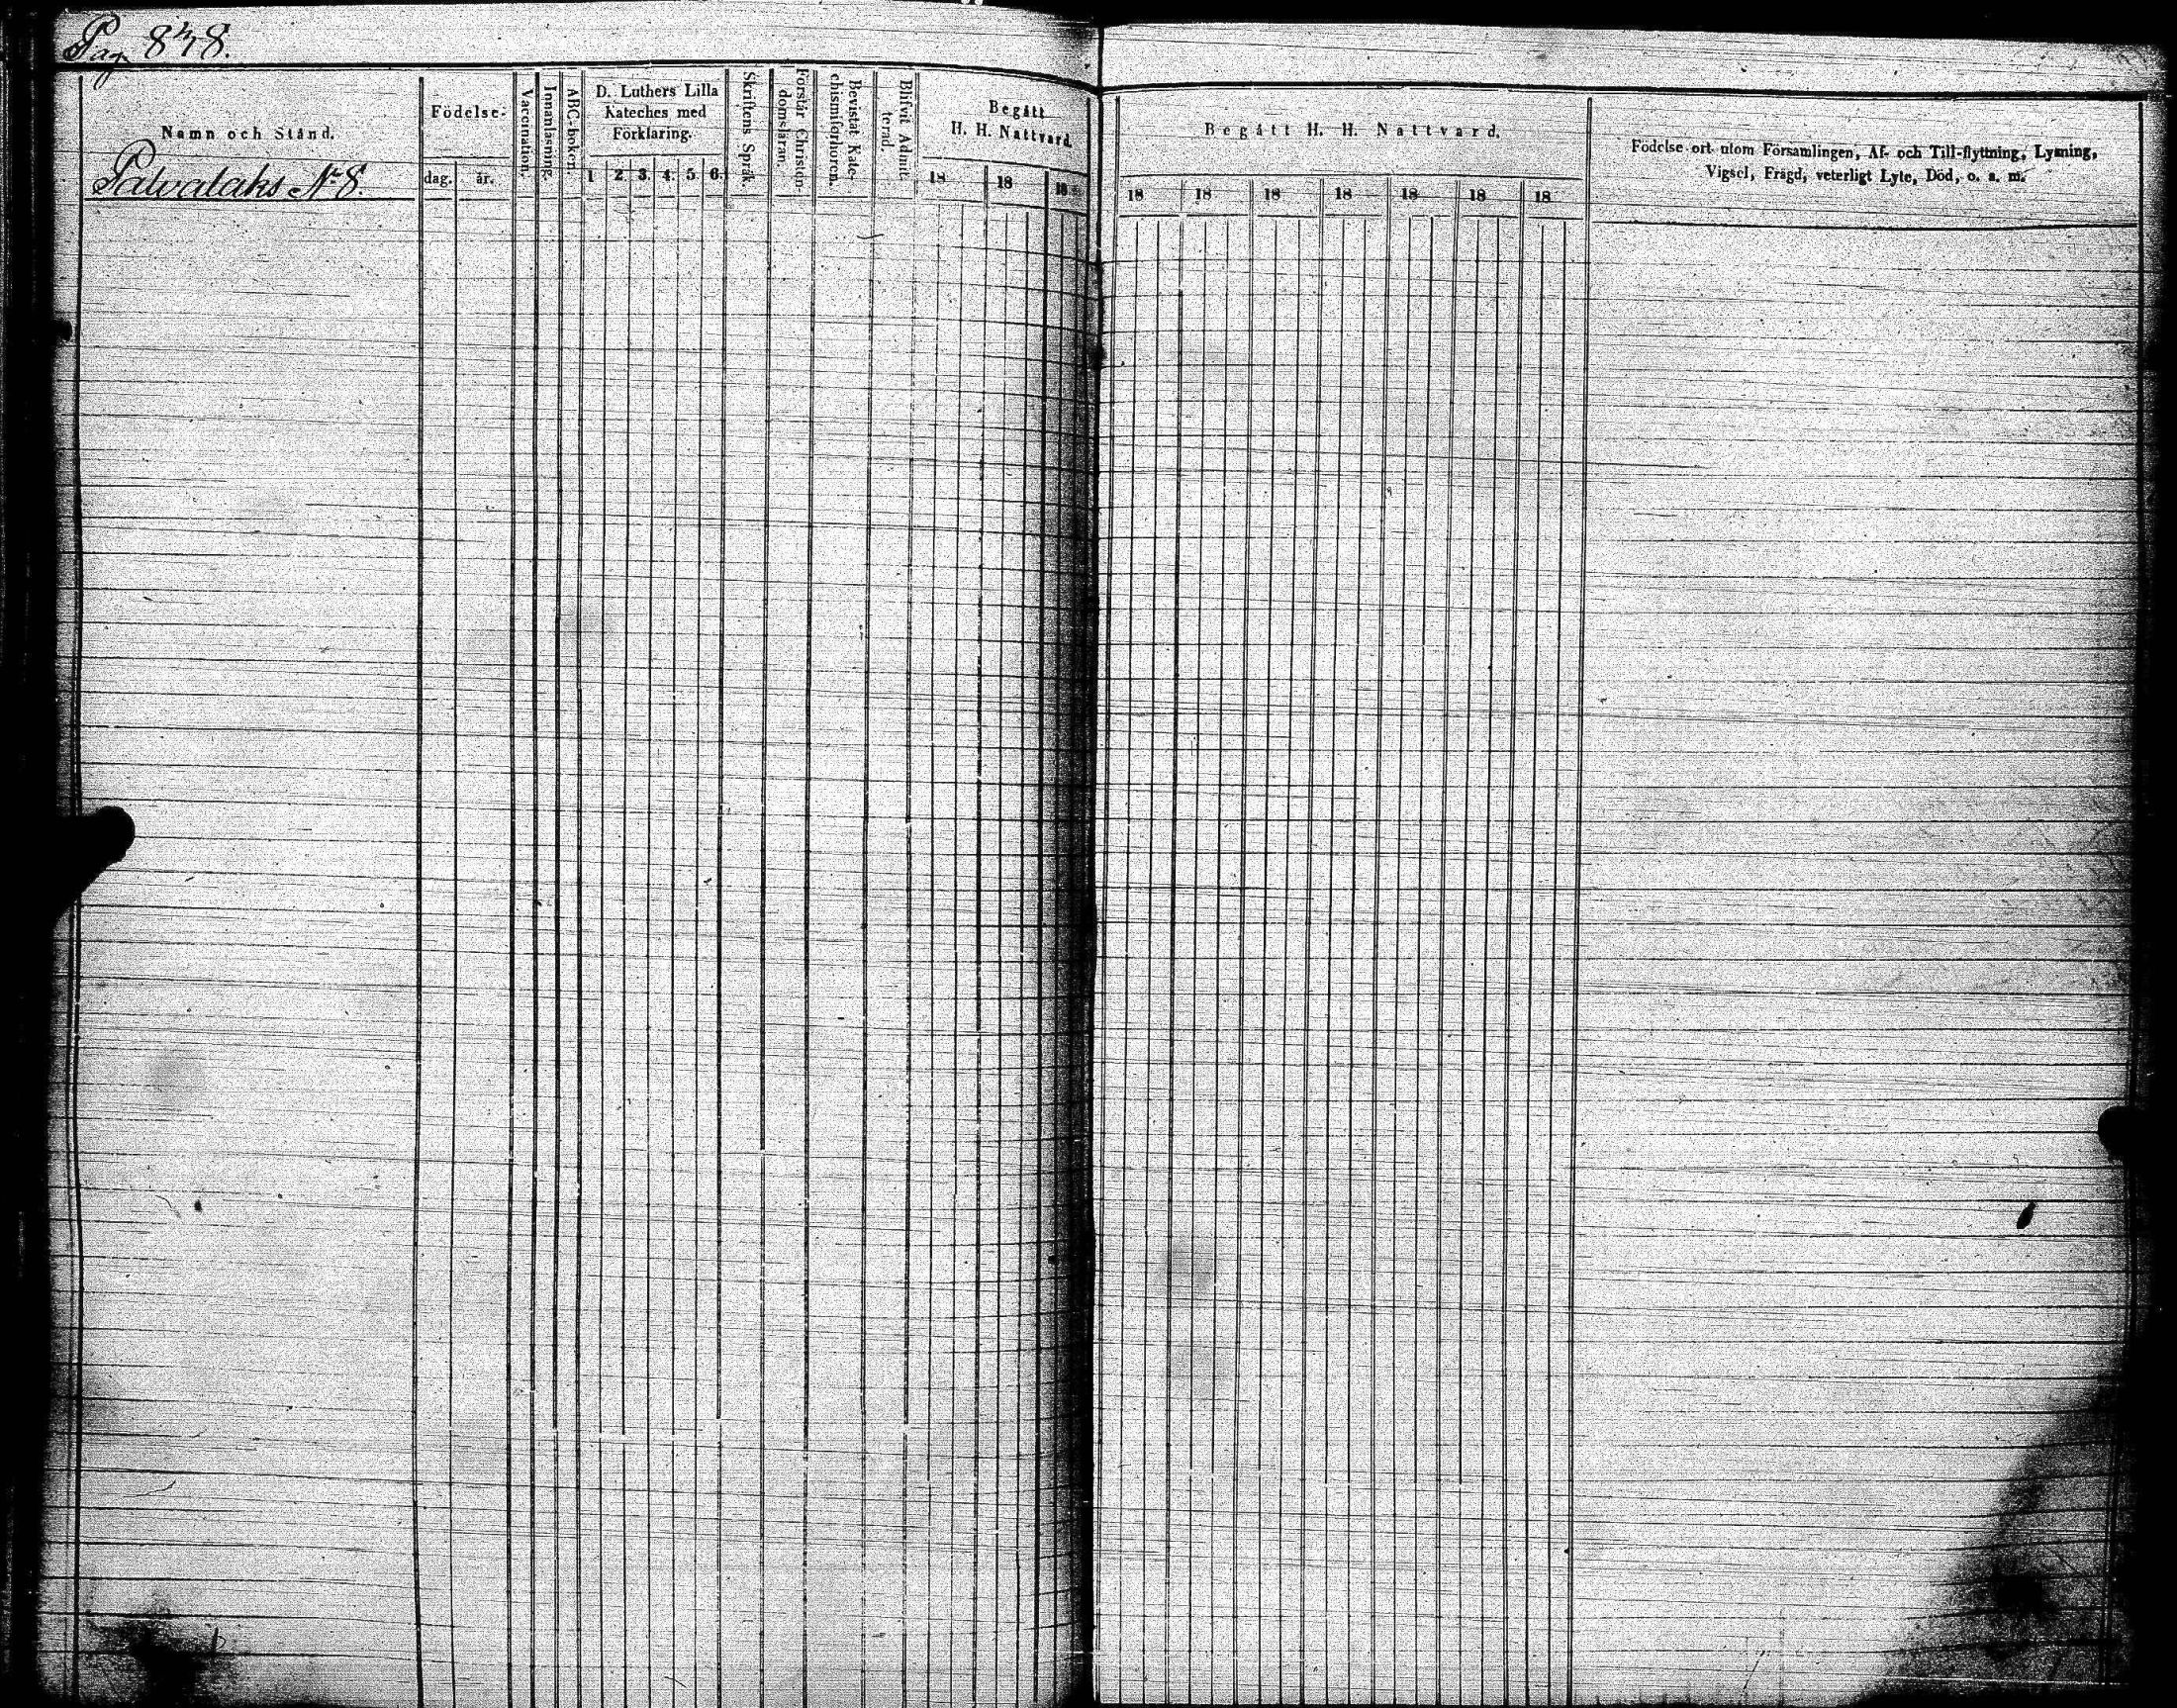 Pag. 848.
Namn och Stånd.
Palvalaks No 8.
Födelse-
dag. år.
Vaccination.
Innanläsning.
ABC-boken.
D. Luthers Lilla
Kateches med
Förklaring.
1 2. 3. 4. 5. 6.
Skriftens Språk.
Förstår Christen-
domsläran.
Bevistat Kate-
chismiförhören.
Blifvit Admit-
terad.
Begått
H. H. Nattvard.
18 18 18
Begått H. H. Nattvard.
18 18 18 18 18 18 18
Födelse-ort utom Församlingen, Af- och Till-flyttning, Lysning,
Vigsel, Frägd, veterligt Lyte, Död, o. s. m.